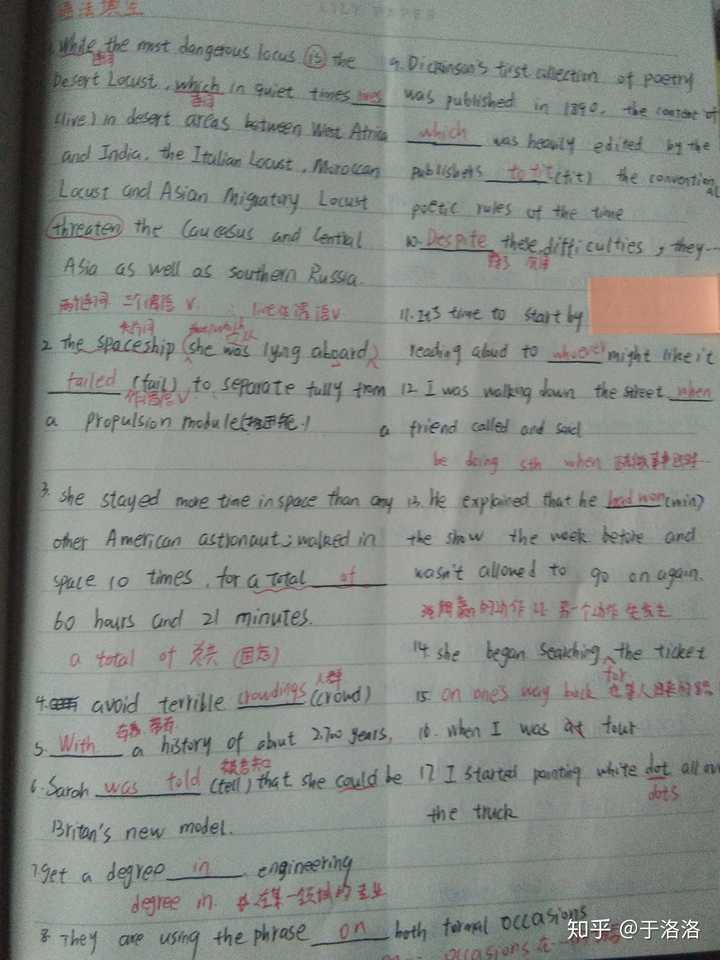 语法填空
LILY PAPER
1. While the most dangerous locus is the
连词
Desert Locust, which in quiet times lives
连词
(live) in desert areas between West Africa
and India, the Italian Locust, Moroccan
Locust and Asian Migratory Locust
threaten the Caucasus and Central
Asia as well as southern Russia.
两个连词 三个谓语 V. live作谓语V
that/which
2. the spaceship (she was lying aboard)
failed (fail) to separate fully from
作谓语V
a propulsion module
3. she stayed more time in space than any
other American astronaut; walked in
space 10 times, for a total of
60 hours and 21 minutes.
a total of 总共 (固定)
人群
4. avoid terrible crowdings (crowd)
有着 带有
5. With a history of about 2,700 years,
被告知
6. Sarah was told (tell) that she could be
Britan's new model.
7. get a degree in engineering
degree in 在某一领域的专业
8. They are using the phrase on both formal occasions
9. Dickinson's first collection of poetry
was published in 1890, the content of
which was heavily edited by the
publishers to fit (fit) the conventional
poetic rules of the time
10. Despite these difficulties, they...
11. It's time to start by
reading aloud to whoever might like it
12 I was walking down the street when
a friend called and said
be doing sth when
13. He explained that he had won (win)
the show the week before and
wasn't allowed to go on again.
的动作 比 另一个动作 先发生
14. she began searching the ticket
for
15. on one's way back 在某人回来的路
16. when I was at four
17 I started painting white dot all over
dots
the truck
知乎 @于洛洛